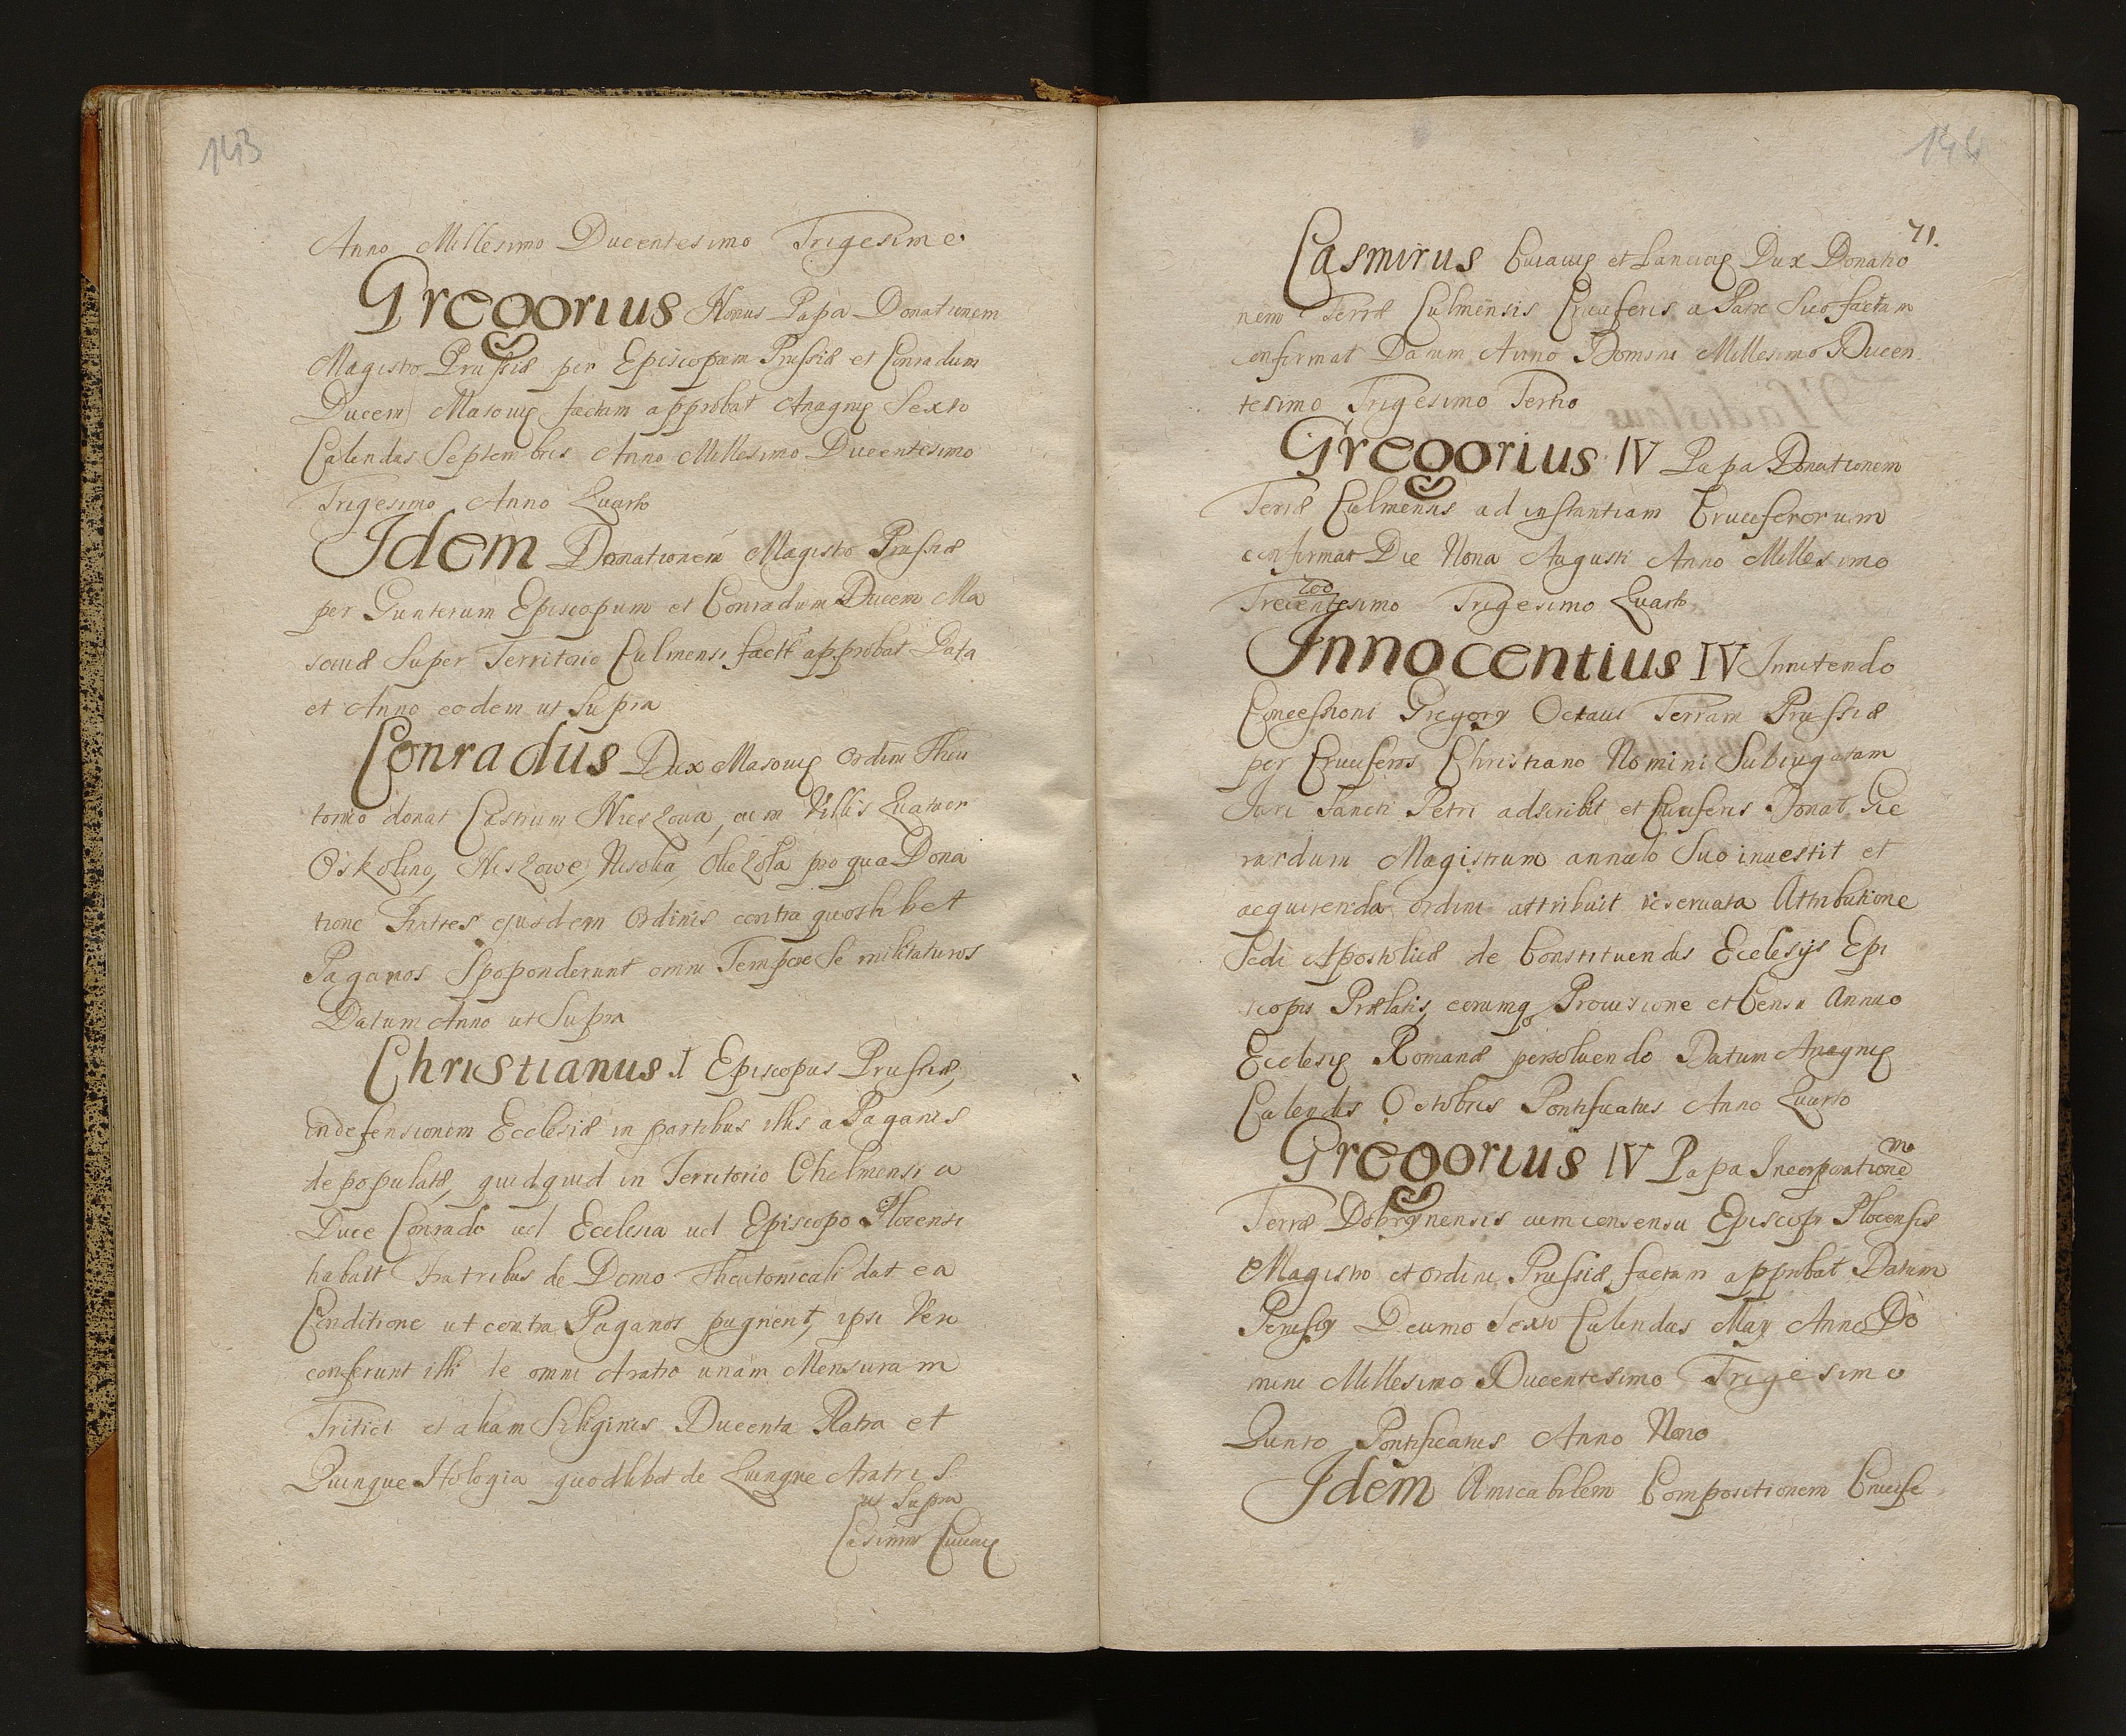 143
Anno Millesimo Ducentesimo Trigesimo
Gregorius Nonus Papa Donationem
Magistro Prussiæ per Episcopum Prussiæ et Conradum
Ducem Masovię factam approbat Anagnię Sexto
Calendas Septembris Anno Millesimo Ducentesimo
Trigesimo Anno Quarto
Idem Donationem Magistro Prussiæ
per Gunterum Episcopum et Conradum Ducem Ma
soviæ Super Territorio Culmensi approbat Data
et Anno eodem ut Supra
Conradus Dux Masovię Ordini Theu
tonico donat Castrum cum Villis Quatuor
pro qua Dona
tione Fratres ejusdem Ordinis contra quoslibet
Paganos Spoponderunt omni Tempore Se militaturos
Datum Anno ut Supra
Christianus I Episcopus Prussiæ,
in defensionem Ecclesiæ in partibus illis a Paganis
depopulatæ, quidquid in Territorio Chelmensi a
Duce Conrado vel Ecclesia vel Episcopo Plocensi
habuit Fratribus de Domo Theutonicali dat ea
Conditione ut contra Paganos pugnent, ipsi Vero
conferunt illi de omni Aratro unam Mensuram
Tritici et aliam Siliginis Ducenta Ratra et
Quinque quodlibet de Quinque Aratris
ut Supra
Casimirus Cuiavię
144
71.
Casmirus Cuiavię et Lancicię Dux Donatio
nem Terræ Culmensis Cruciferis a Patre Suo factam
confirmat Datum Anno Domini Millesimo Ducen
tesimo Trigesimo Tertio
Gregorius IV Papa Donationem
Terræ Culmensis ad instantiam Cruciferorum
confirmat Die Nona Augusti Anno Millesimo
200
Trecentesimo Trigesimo Quarto
Innocentius IV Innitendo
Concessioni Gregorÿ Octavi Terram Prussiæ
per Cruciferos Christiano Nomini Subiugatam
Juri Sancti Petri adscribit et Cruciferis Donat Ge
rardum Magistrum annulo Suo investit et
acquirenda Ordini attribuit reservata Attributione
Sedi Apostolicæ de Constituendis Ecclesÿs Epi
scopis Prælatis, eorumq Provisione et Censu Annuo
Ecclesię Romanæ persolvendo Datum Anagnię
Calendis Octobris Pontificatus Anno Quarto
Gregorius IV Papa Incorporatione
Terræ Dobrÿnensis cum censensu Episcopi Plocensis
Magistro et Ordini Prussiæ factam approbat Datum
Perusÿ Decimo Sexto Calendas Maÿ Anno Do
mini Millesimo Ducentesimo Trigesimo
Quinto Pontificatus Anno Nono
Idem Amicabilem Compositionem Crucife